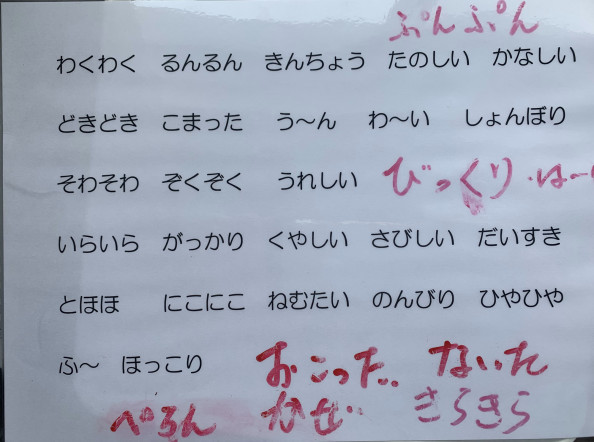 ぷんぷん
わくわく るんるん きんちょう たのしい かなしい
どきどき こまった う～ん わ～い しょんぼり
そわそわ ぞくぞく うれしい びっくり
いらいら がっかり くやしい さびしい だいすき
とほほ にこにこ ねむたい のんびり ひやひや
ふ～ ほっこり おこった.. ないた
きらきら